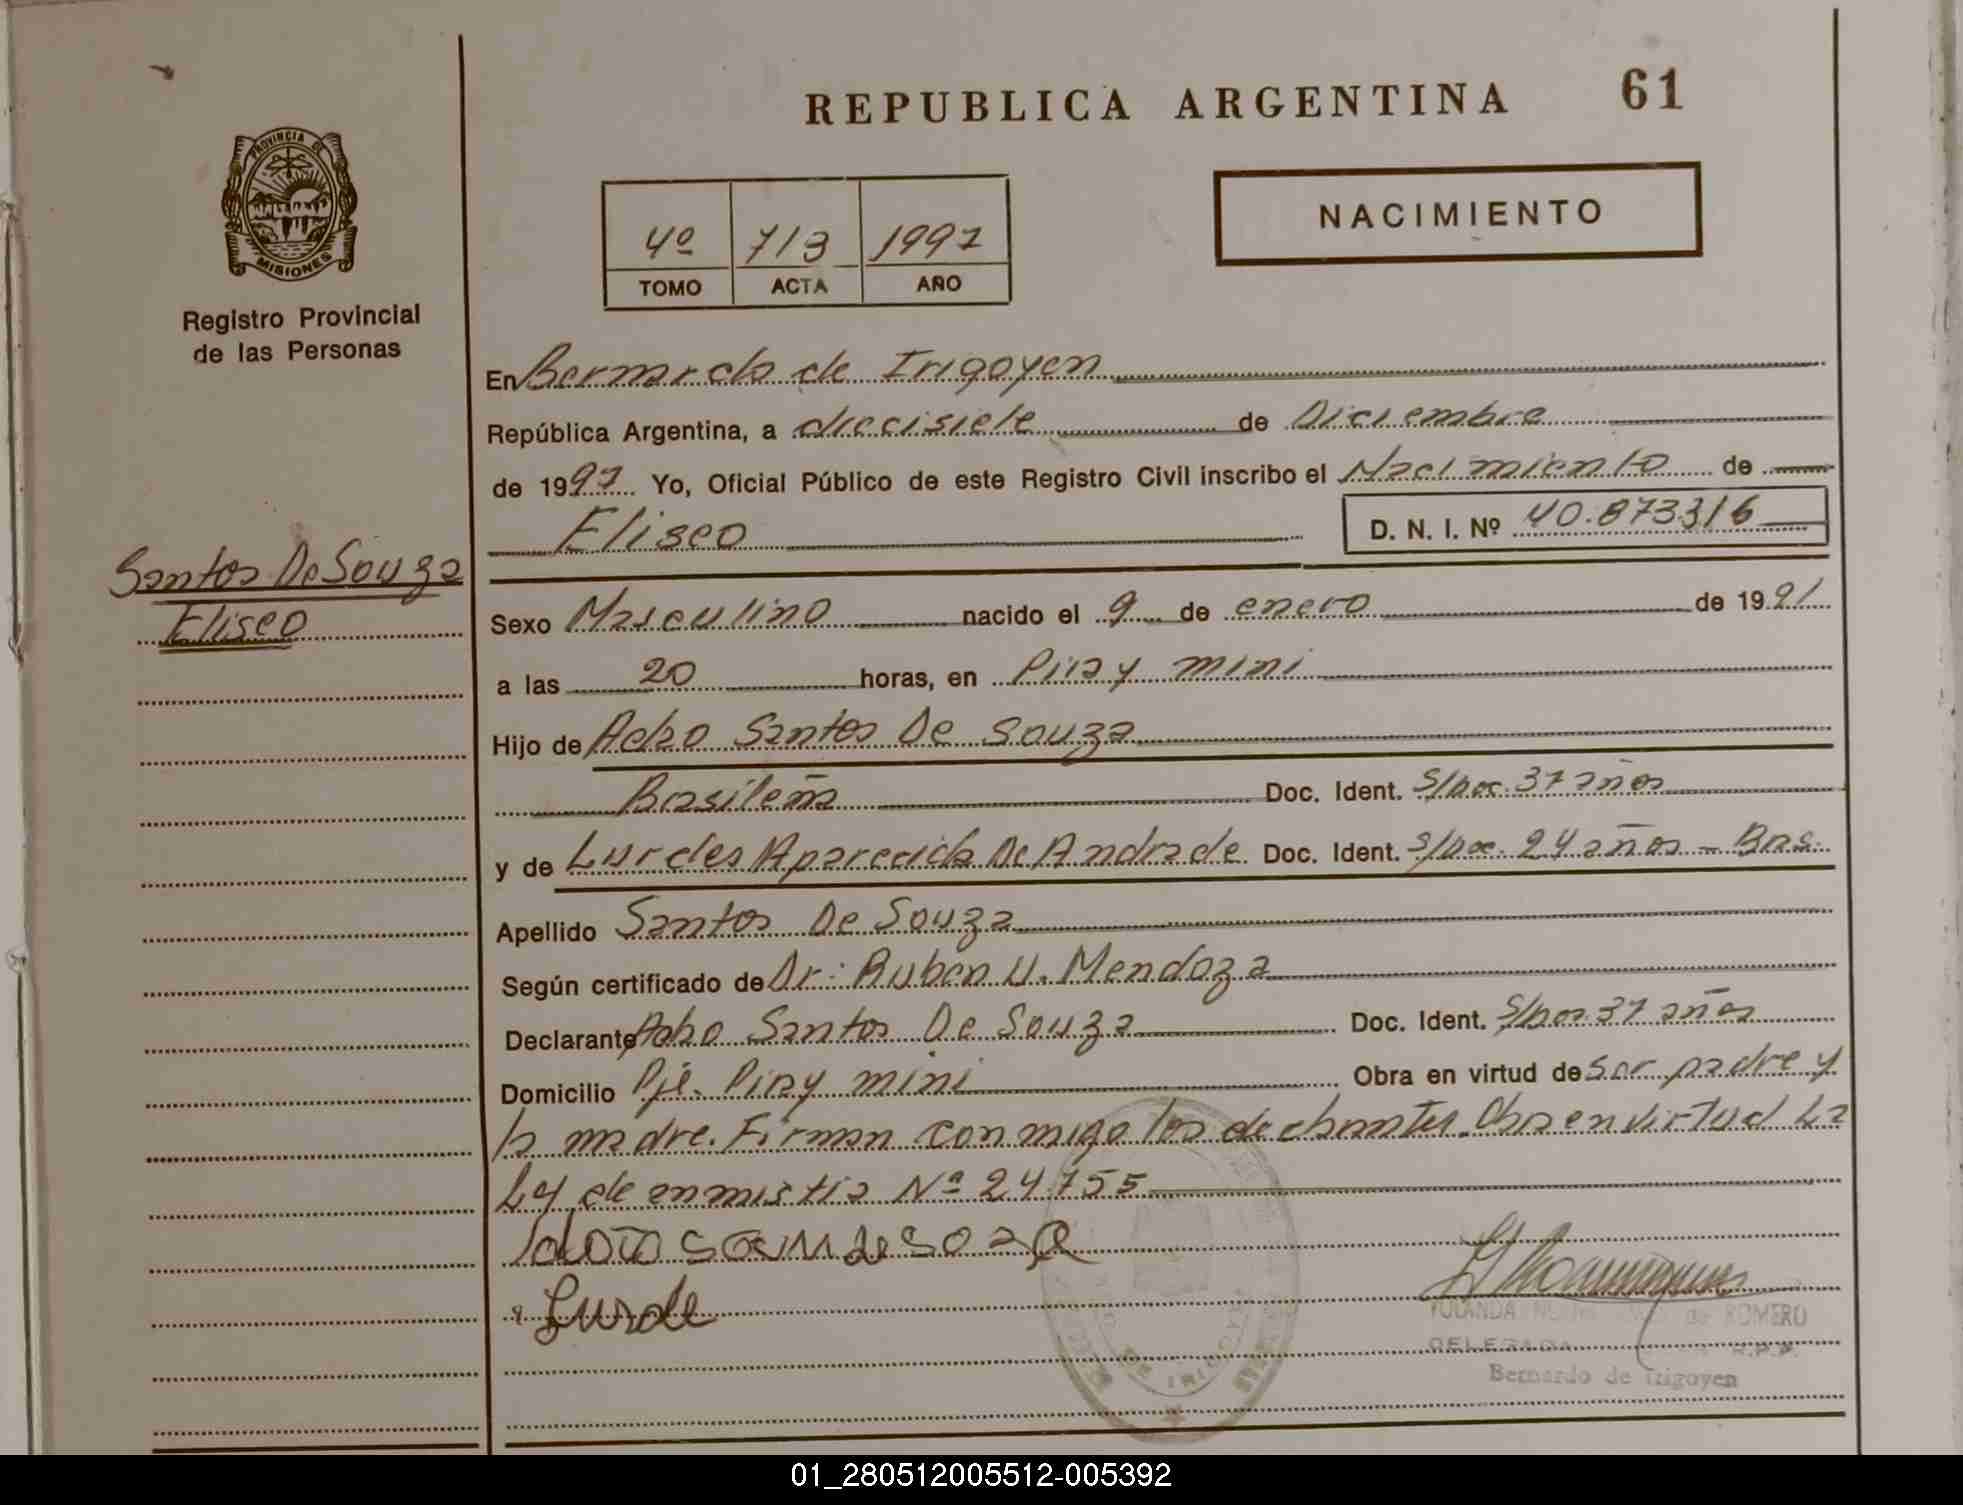 REPUBLICA ARGENTINA 61
PROVINCIA DE
MISIONES
Registro Provincial
de las Personas
4º 713 1997
TOMO ACTA AÑO
NACIMIENTO
En Bernardo de Irigoyen
República Argentina, a diecisiete de Diciembre
de 1997 Yo, Oficial Público de este Registro Civil inscribo el Nacimiento de
Eliseo D. N. I. Nº 40.873316
Santos De Souza
Eliseo
Sexo Masculino nacido el 9 de enero de 1991
a las 20 horas, en Piray mini
Hijo de Adão Santos De Souza
Brasileña Doc. Ident. S/Doc. 37 años
y de Lurdes Aparecida De Andrade Doc. Ident. S/Doc. 24 años - Bras.
Apellido Santos De Souza
Según certificado de Dr: Ruben U. Mendoza
Declarante Adão Santos De Souza Doc. Ident. S/Doc 37 años
Domicilio Pje. Piray mini Obra en virtud de ser padre y
la madre. Firman conmigo los declarantes. Obra en virtud La
Ley de enmistia Nº 24.755
Lurde
YOLANDA de ROMERO
DELEGADA R.P.P.
Bernardo de Irigoyen
01_280512005512-005392